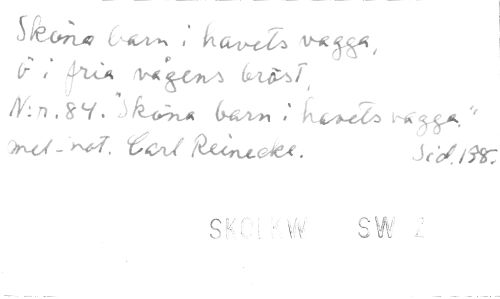 Sköna barn i havets vagga,
ö i fria vågens bröst,
N:r. 84. "Sköna barn i havets vagga."
mel-not. Carl Reinecke. Sid. 138.
SKOLKW SW 2